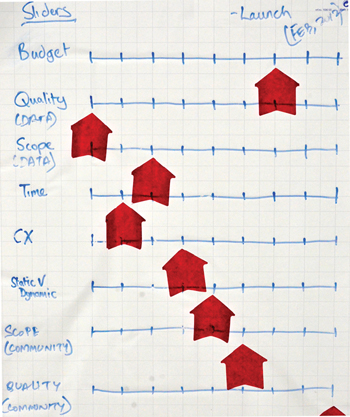 Sliders
-Launch
(FEB, 2012)
Budget
Quality
(DATA)
Scope
(DATA)
Time
CX
Static V
Dynamic
SCOPE
(COMMUNITY)
QUALITY
(COMMUNITY)